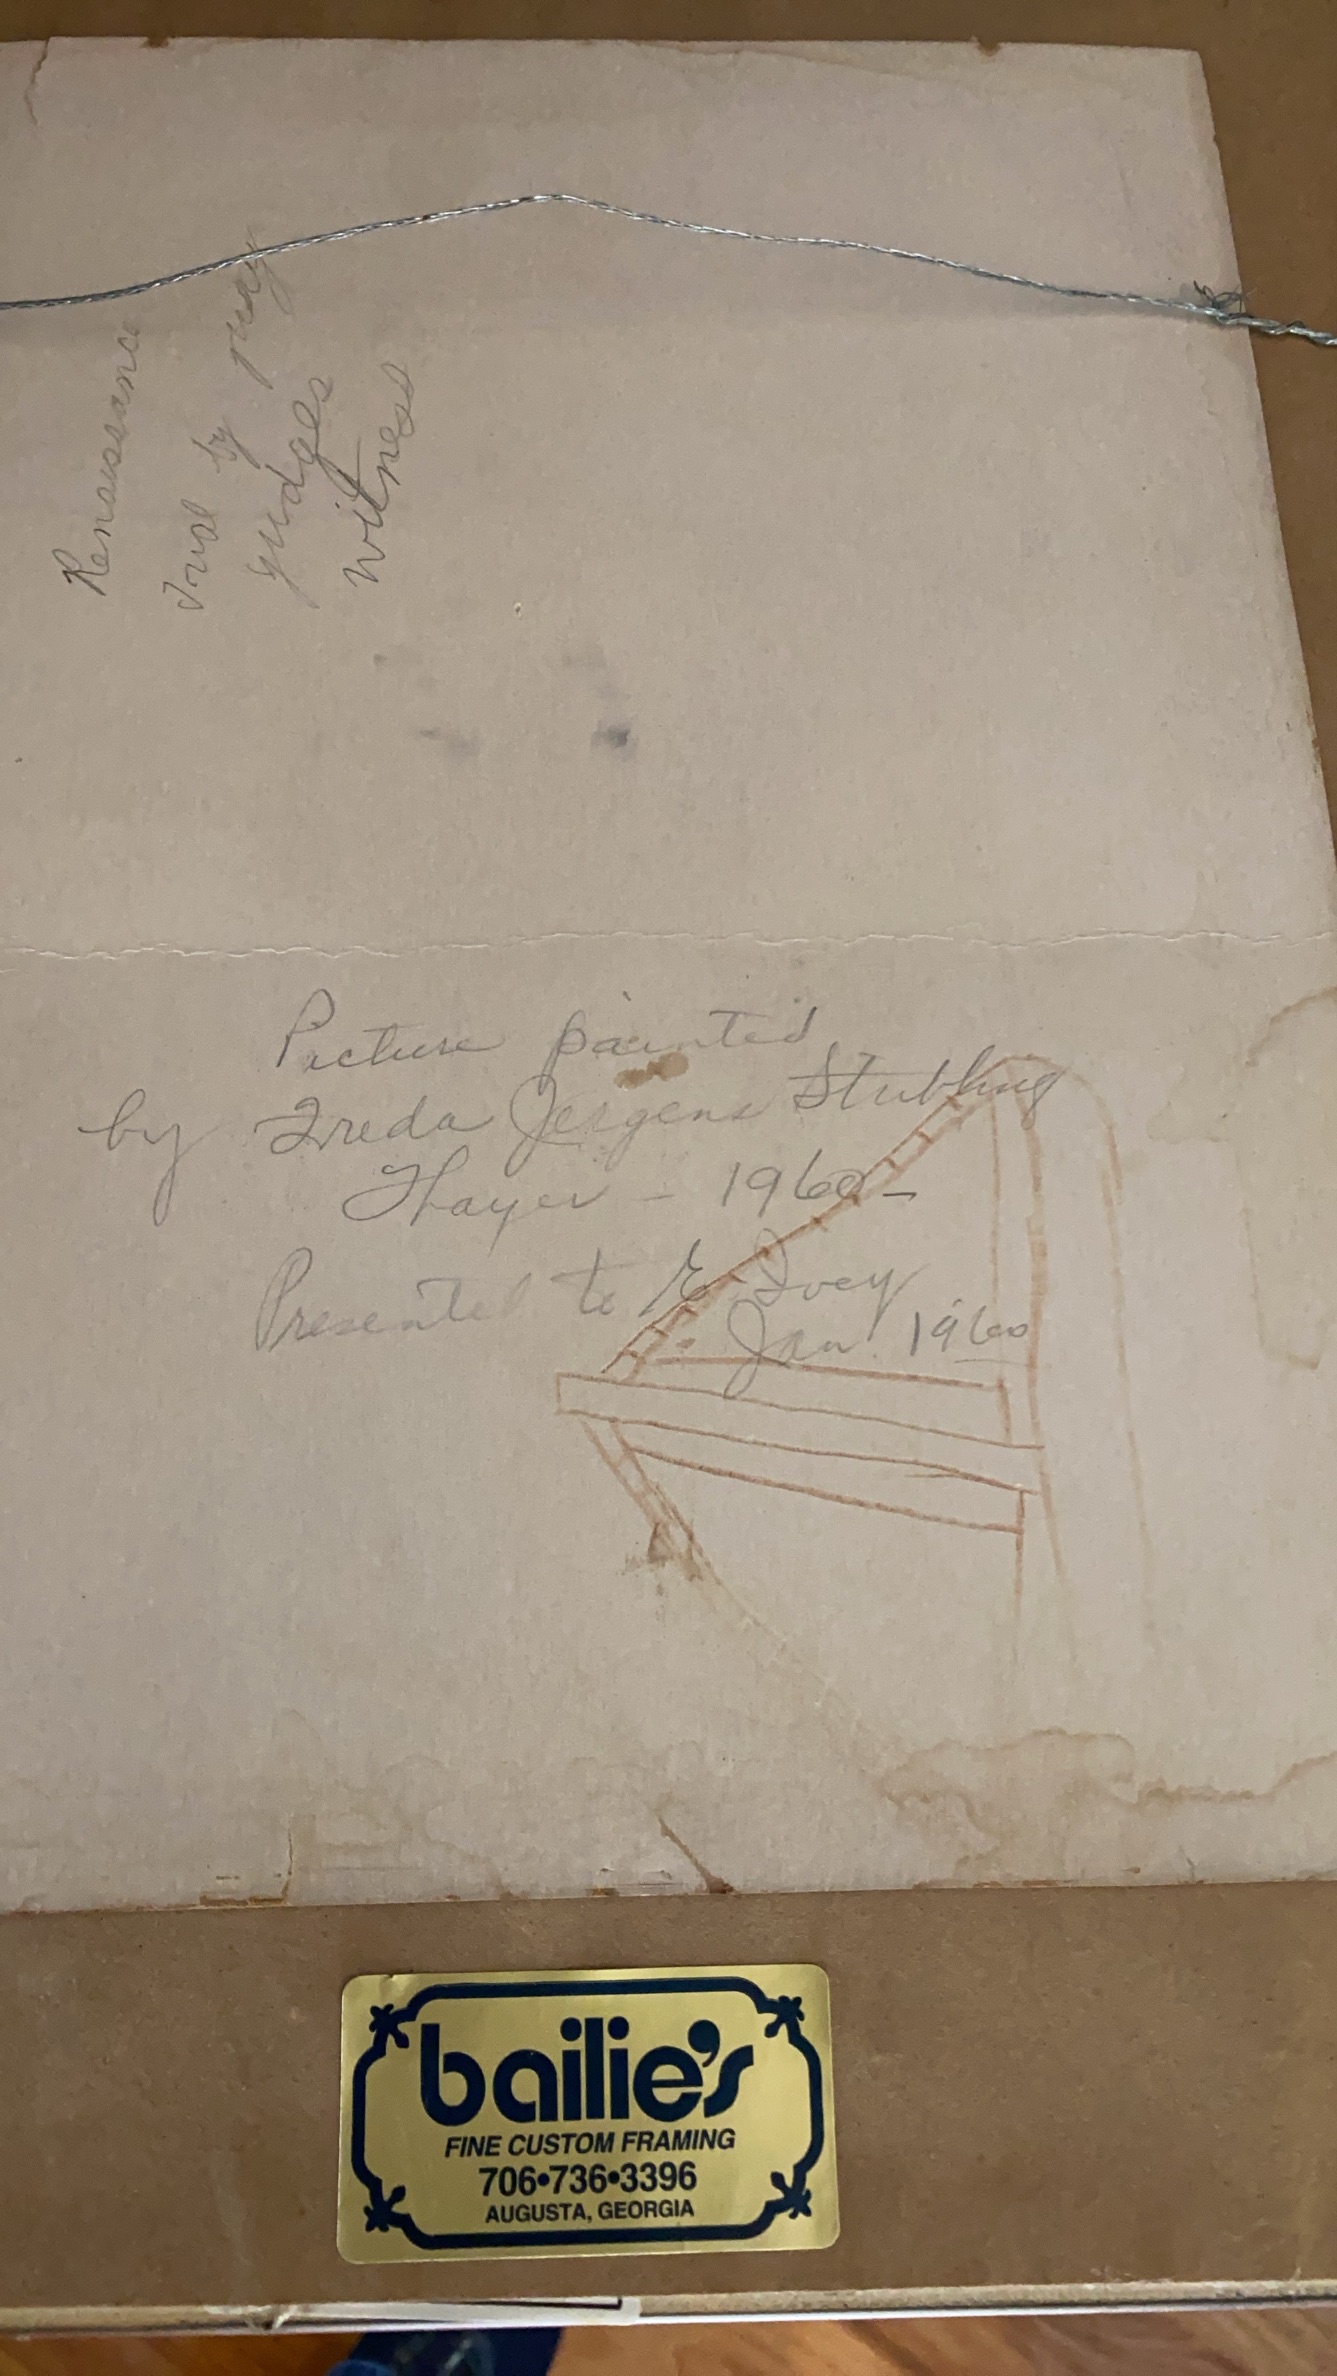 Renaussance
Trial by jury
judges
witness
Picture painted
by Freda Jergens Stubbling
Thayer - 1960 -
Presented to E. Ivey
Jan. 1960
bailie's
FINE CUSTOM FRAMING
706•736•3396
AUGUSTA, GEORGIA